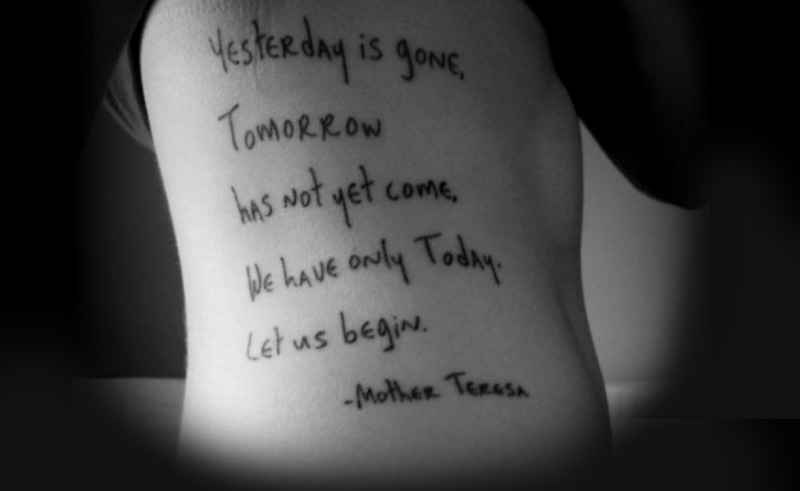 Yesterday is gone,
Tomorrow
has not yet come,
We have only Today.
Let us begin.
-Mother Teresa